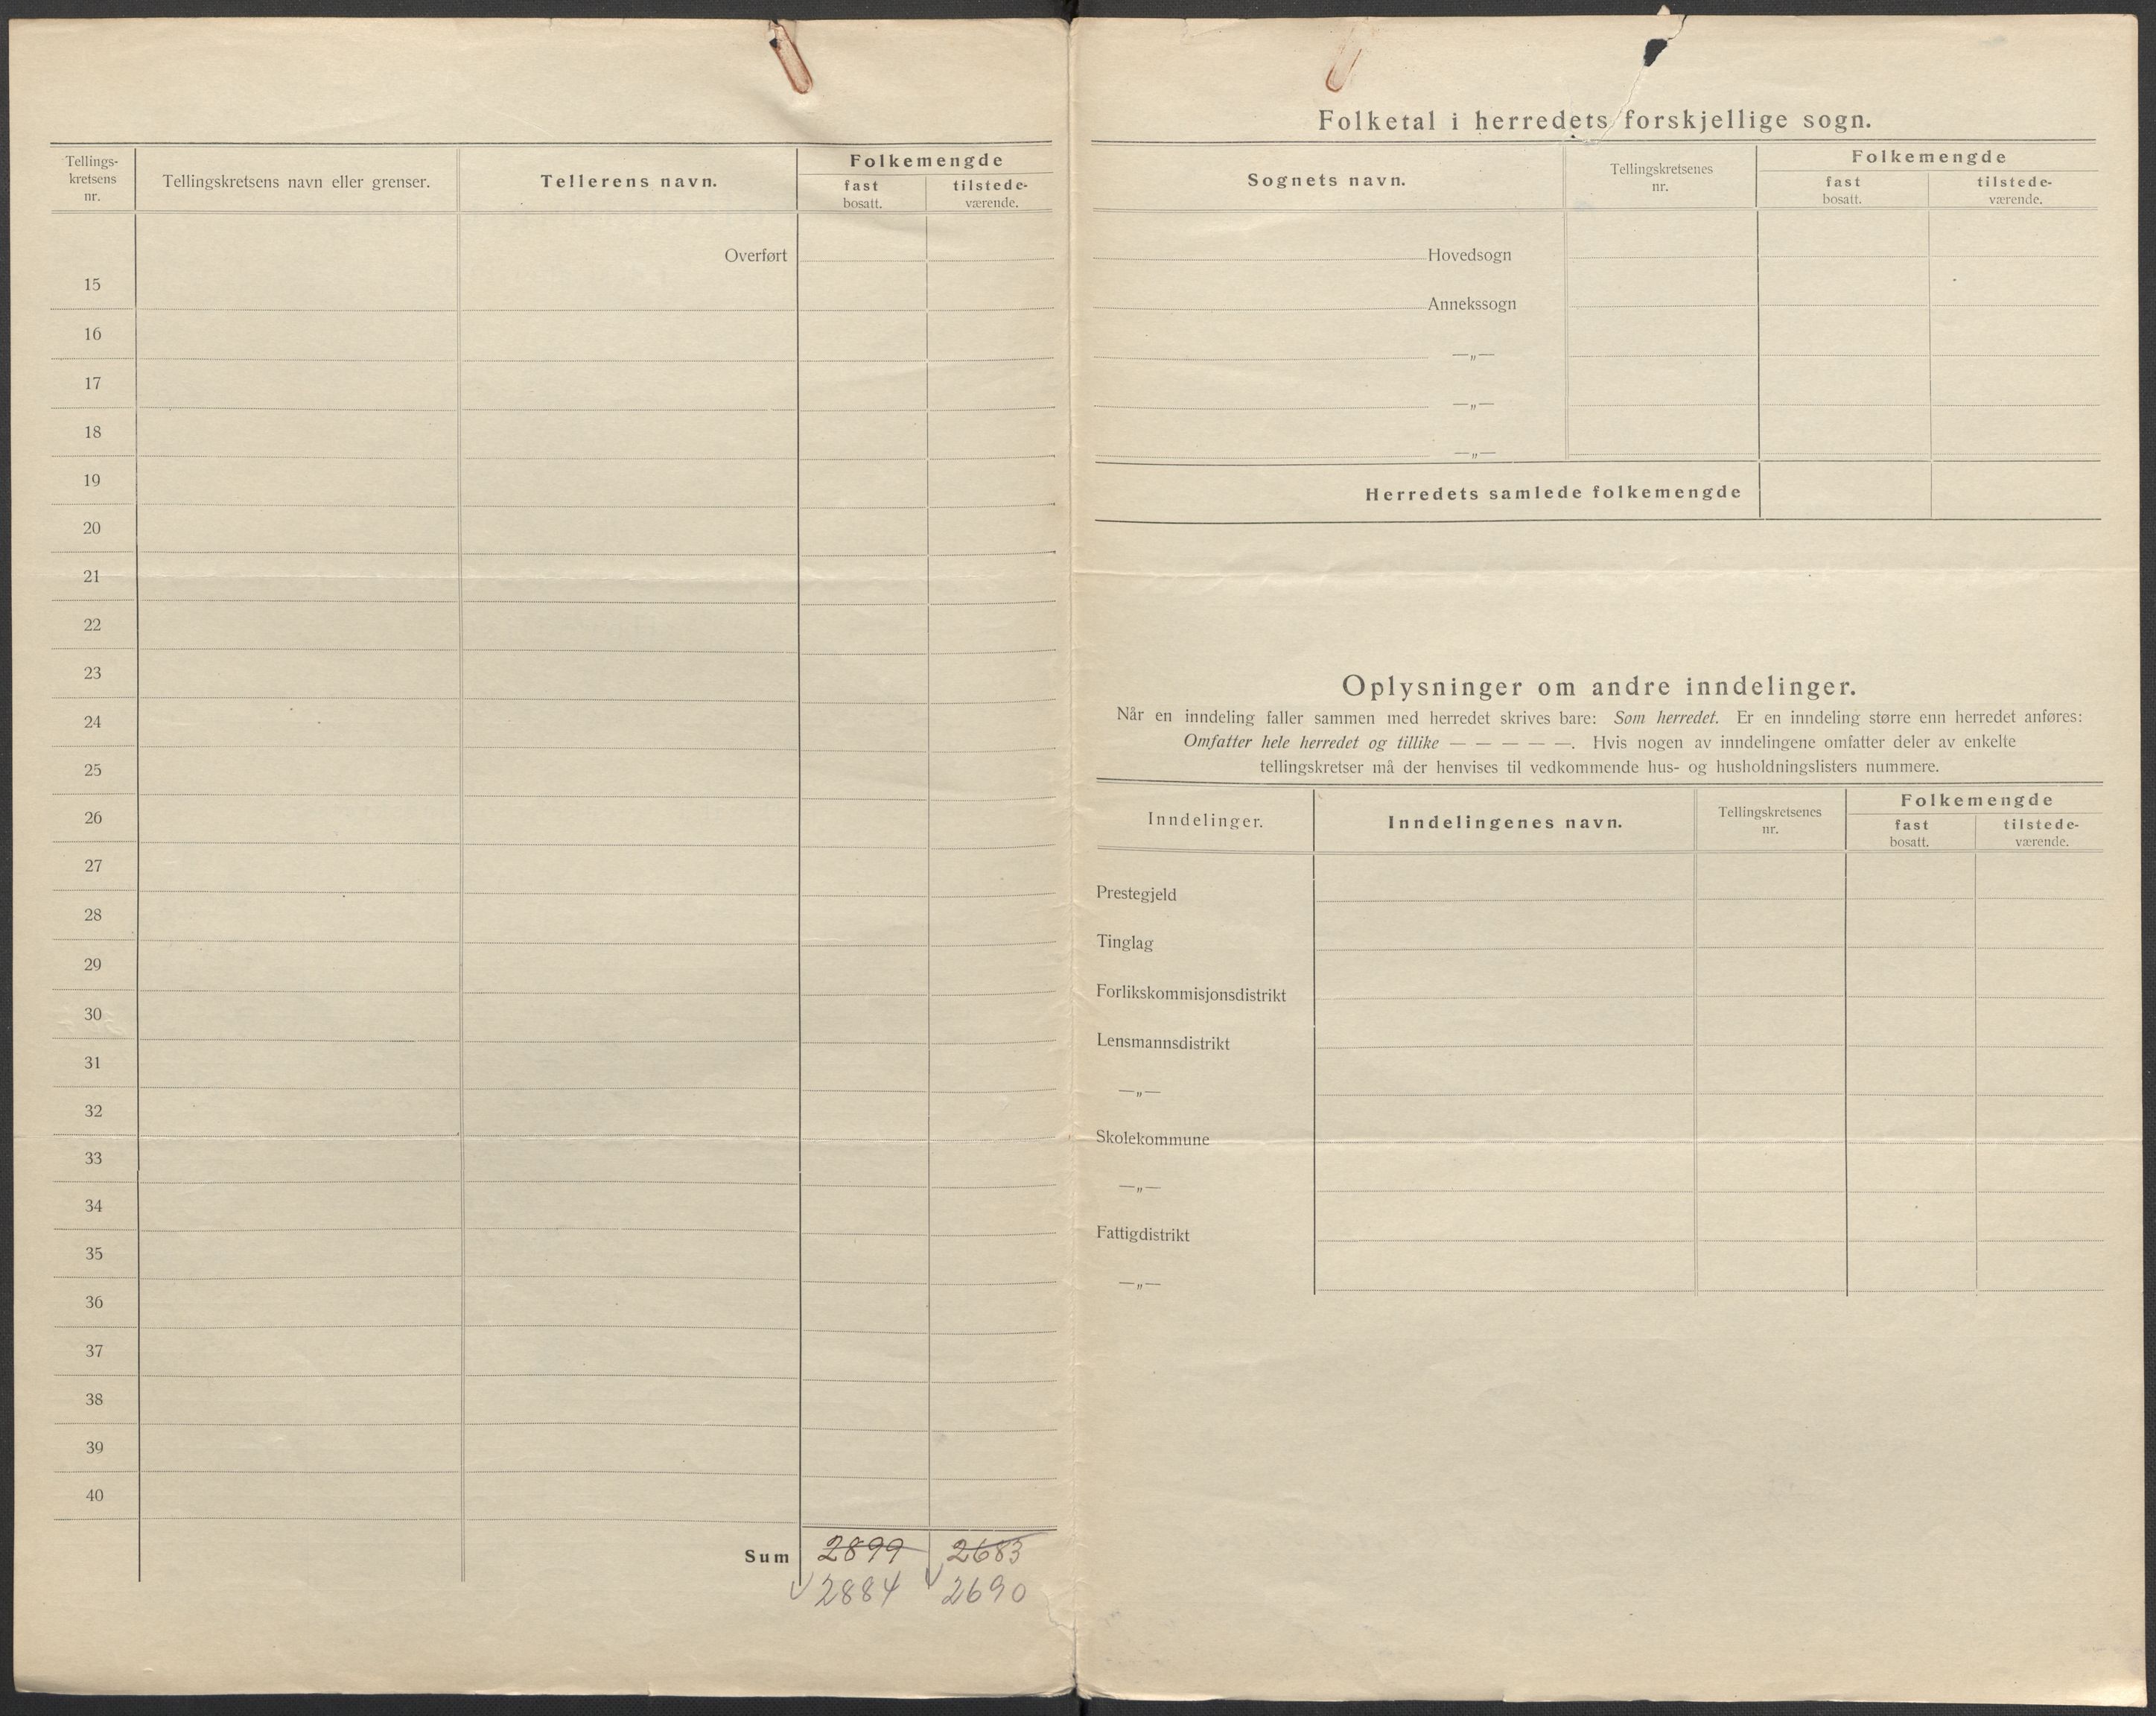 Tellings-
kretsens
nr.
Tellingskretsens navn eller grenser.
Tellerens navn.
Folkemengde
fast
bosatt.
tilstede-
værende.
Overført
15
16
17
18
19
20
21
22
23
24
25
26
27
28
29
30
31
32
33
34
35
36
37
38
39
40
Sum 2899 2683
2884 2690
Folketal i herredets forskjellige sogn.
Sognets navn.
Tellingskretsenes
nr.
Folkemengde
fast
bosatt.
tilstede-
værende.
Hovedsogn
Annekssogn
—„—
—„—
—„—
Herredets samlede folkemengde
Oplysninger om andre inndelinger.
Når en inndeling faller sammen med herredet skrives bare: Som herredet. Er en inndeling større enn herredet anføres:
Omfatter hele herredet og tillike — — — — —. Hvis nogen av inndelingene omfatter deler av enkelte
tellingskretser må der henvises til vedkommende hus- og husholdningslisters nummere.
Inndelinger.
Inndelingenes navn.
Tellingskretsenes
nr.
Folkemengde
fast
bosatt.
tilstede-
værende.
Prestegjeld
Tinglag
Forlikskommisjonsdistrikt
Lensmannsdistrikt
—„—
Skolekommune
—„—
Fattigdistrikt
—„—